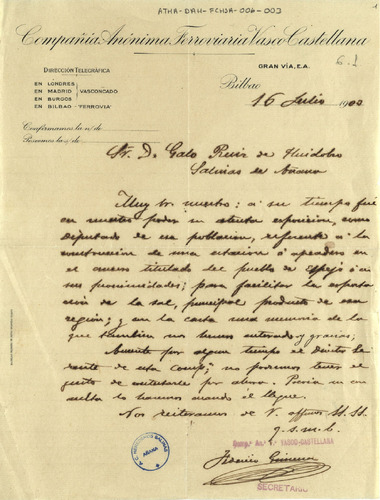 ATHA-DAH-FCHSA-006-003
Compañía Anónima Ferroviaria Vasco-Castellana
DIRECCIÓN TELEGRÁFICA
GRAN VÍA, E.A.
6.1
EN LONDRES
EN MADRID
EN BURGOS
VASCONCADO
EN BILBAO - "FERROVIA"
Bilbao
16 Julio 1902
Confirmamos la n/ de
Poseemos la s/ de
Sr. D. Galo Ruiz de Huidobro
Salinas de Añana
Muy Sr. nuestro: a su tiempo fué
en nuestro poder su atenta exposicion, como
Diputado de esa poblacion, referente á la
construccion de una estacion ó apeadero en
el cruce titulado del pueblo de Espejo ó en
sus proximidades; para facilitar la exporta
cion de la sal, principal producto de esa
region; y en la carta una memoria de la
que tambien nos hemos enterado y gracias,
Ausente por algun tiempo el Director Ge
rente de esta Comp.ª no podemos tener el
gusto de contestarle por ahora. Pronta
lo haremos cuando él llegue.
Nos reiteramos de V. affmos SS. SS.
q. s. m. b.
Comp. An. F. VASCO-CASTELLANA
SECRETARIO
SALINAS
AÑANA